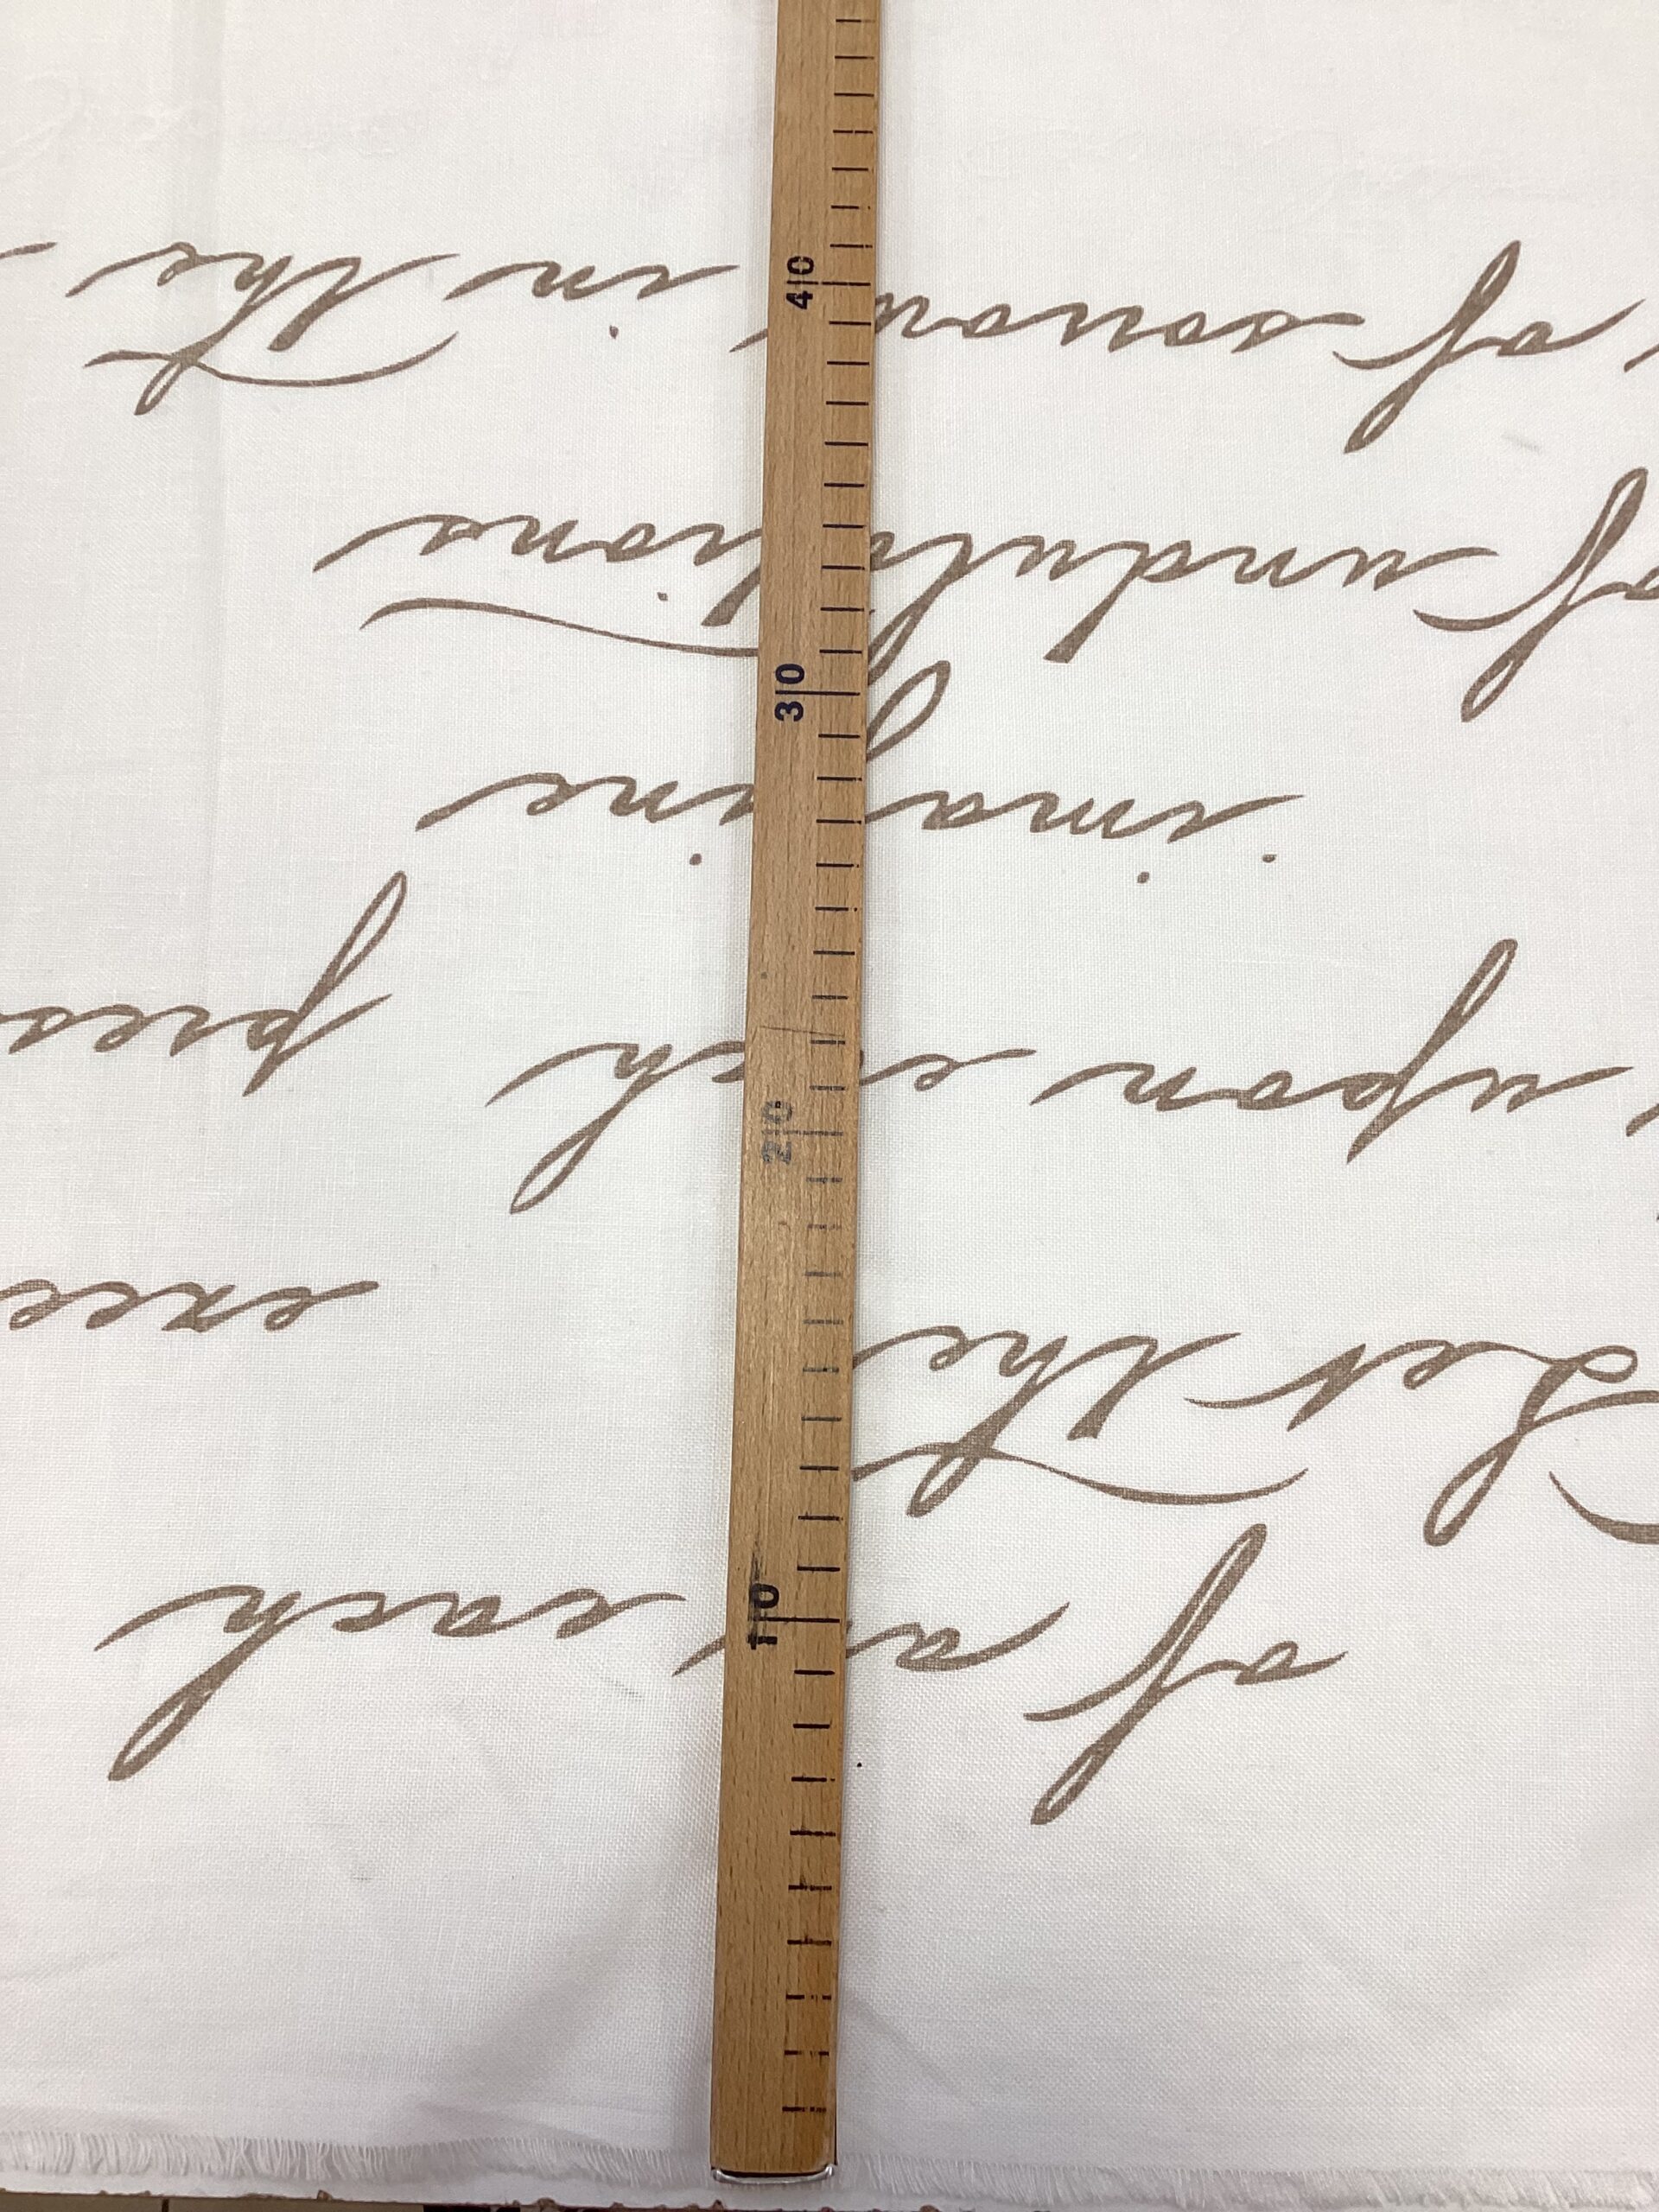 of each
Let the exce
upon each pres
imagine
of undulations
of in the
10
20
30
40